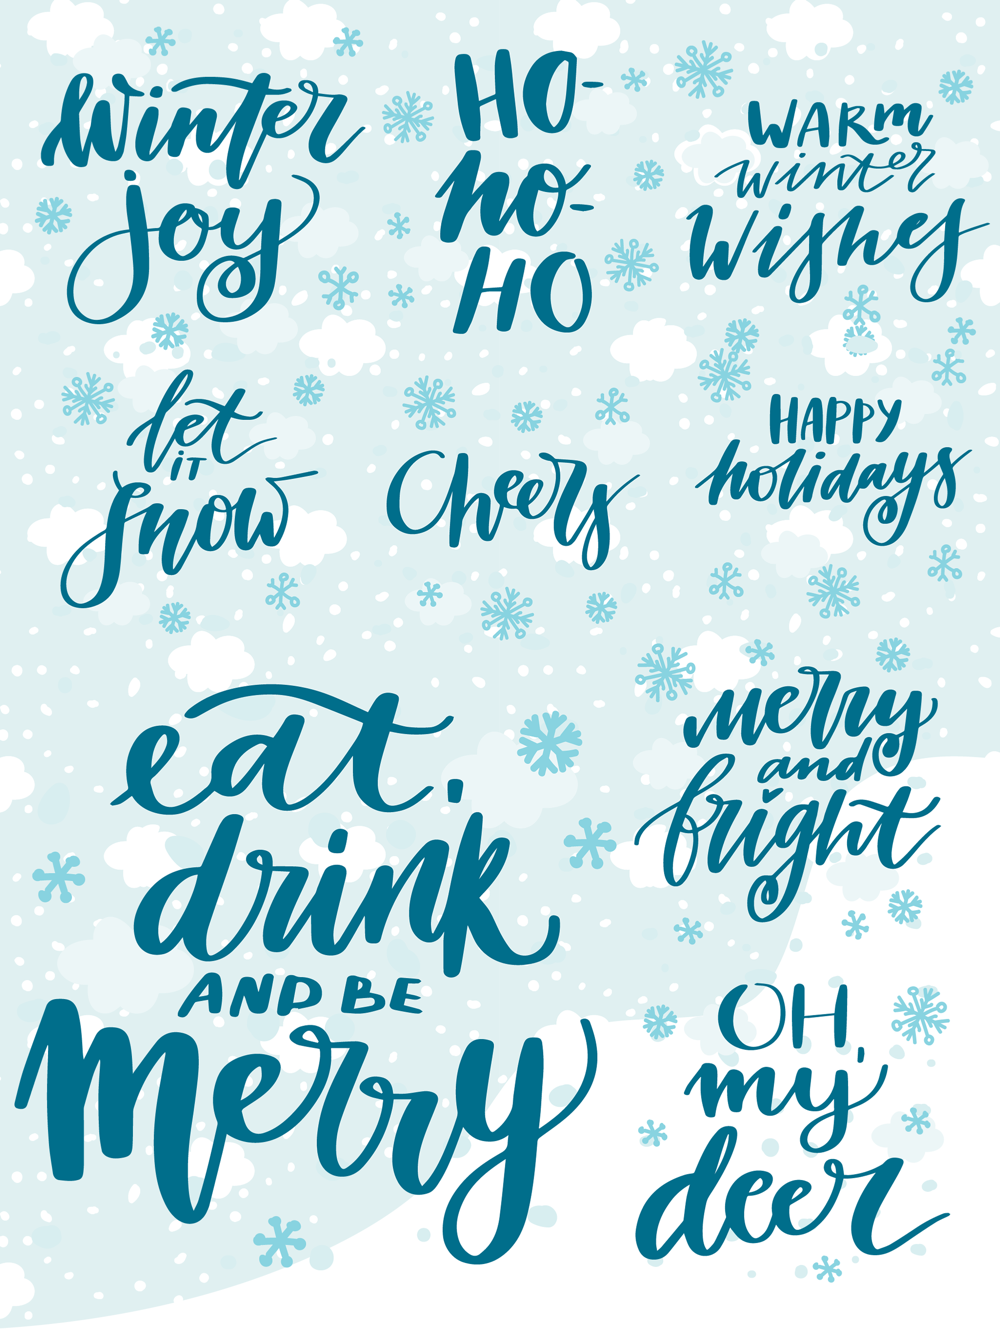 Winter
joy
HO-
ho-
HO
WARM
winter
Wishes
let
IT
Snow
Cheers
HAPPY
holidays
eat,
drink
AND BE
Merry
Merry
and
bright
OH,
my
deer